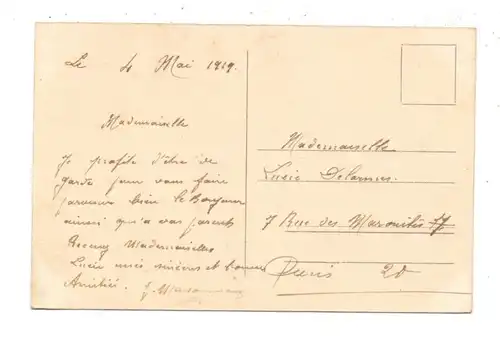 Le 4 Mai 1919.
Mademoiselle
Je profite d'être de
garde pour vous faire
parvenir bien le Bonjour
ainsi qu'a vos parents
Recevez Mademoiselle
Lucie mes sincères et bonnes
Amitiés.
Mademoiselle
Lucie Delormes.
7 Rue des Maronites 17
Paris 20